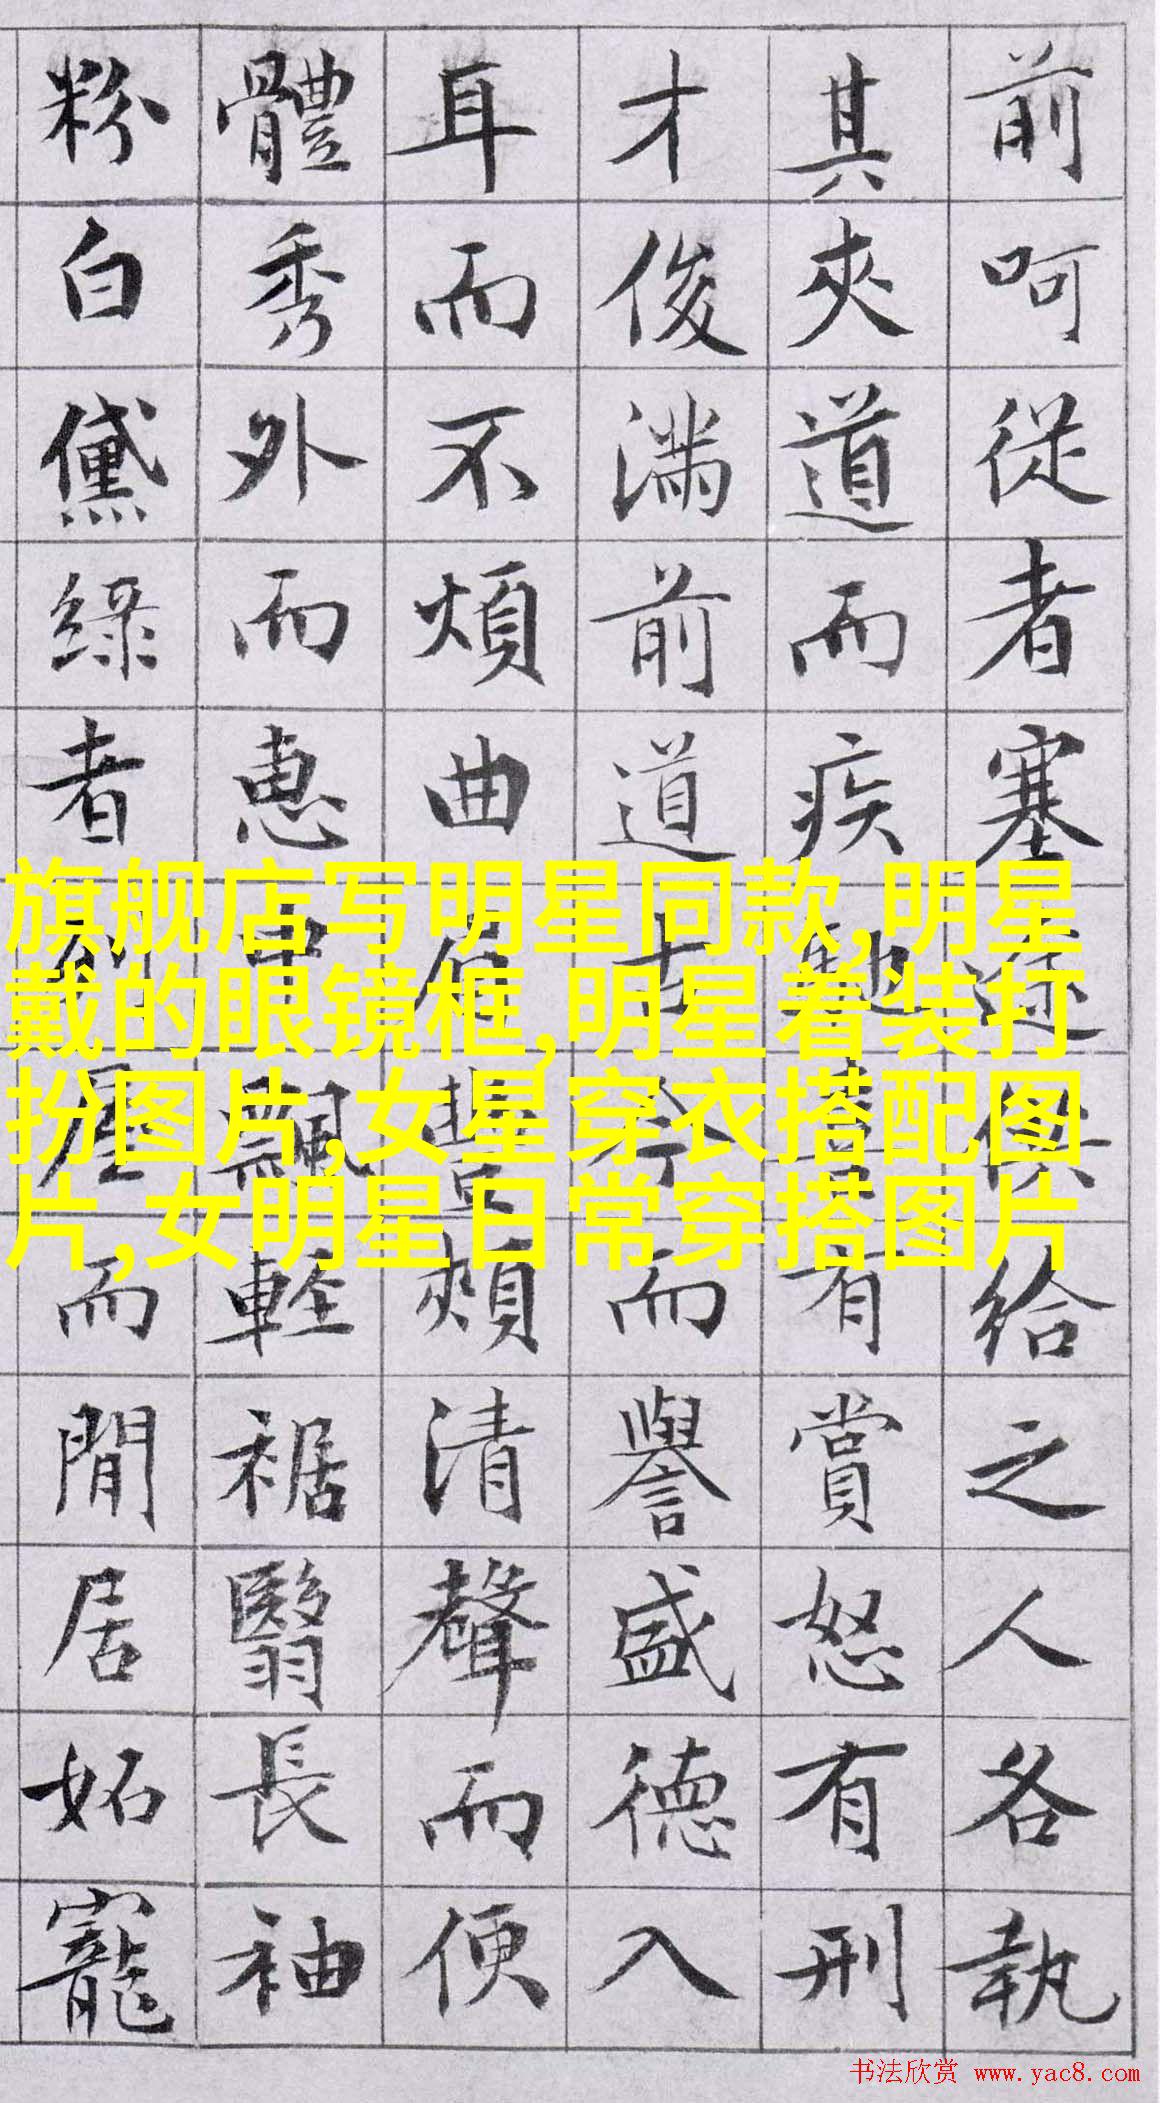 前呵從者塞途供給之人各執
其夾道而疾馳喜有賞怒有刑
才俊滿前道古今而譽盛德入
耳而不煩曲眉豐頰清聲而便
體秀外而惠中飄輕裾翳長袖
粉白黛綠者列屋而閒居妬寵
旗舰店写明星同款,明星
戴的眼镜框,明星着装打
扮图片,女星穿衣搭配图
片,女明星日常穿搭图片
书法欣赏 www.yac8.com